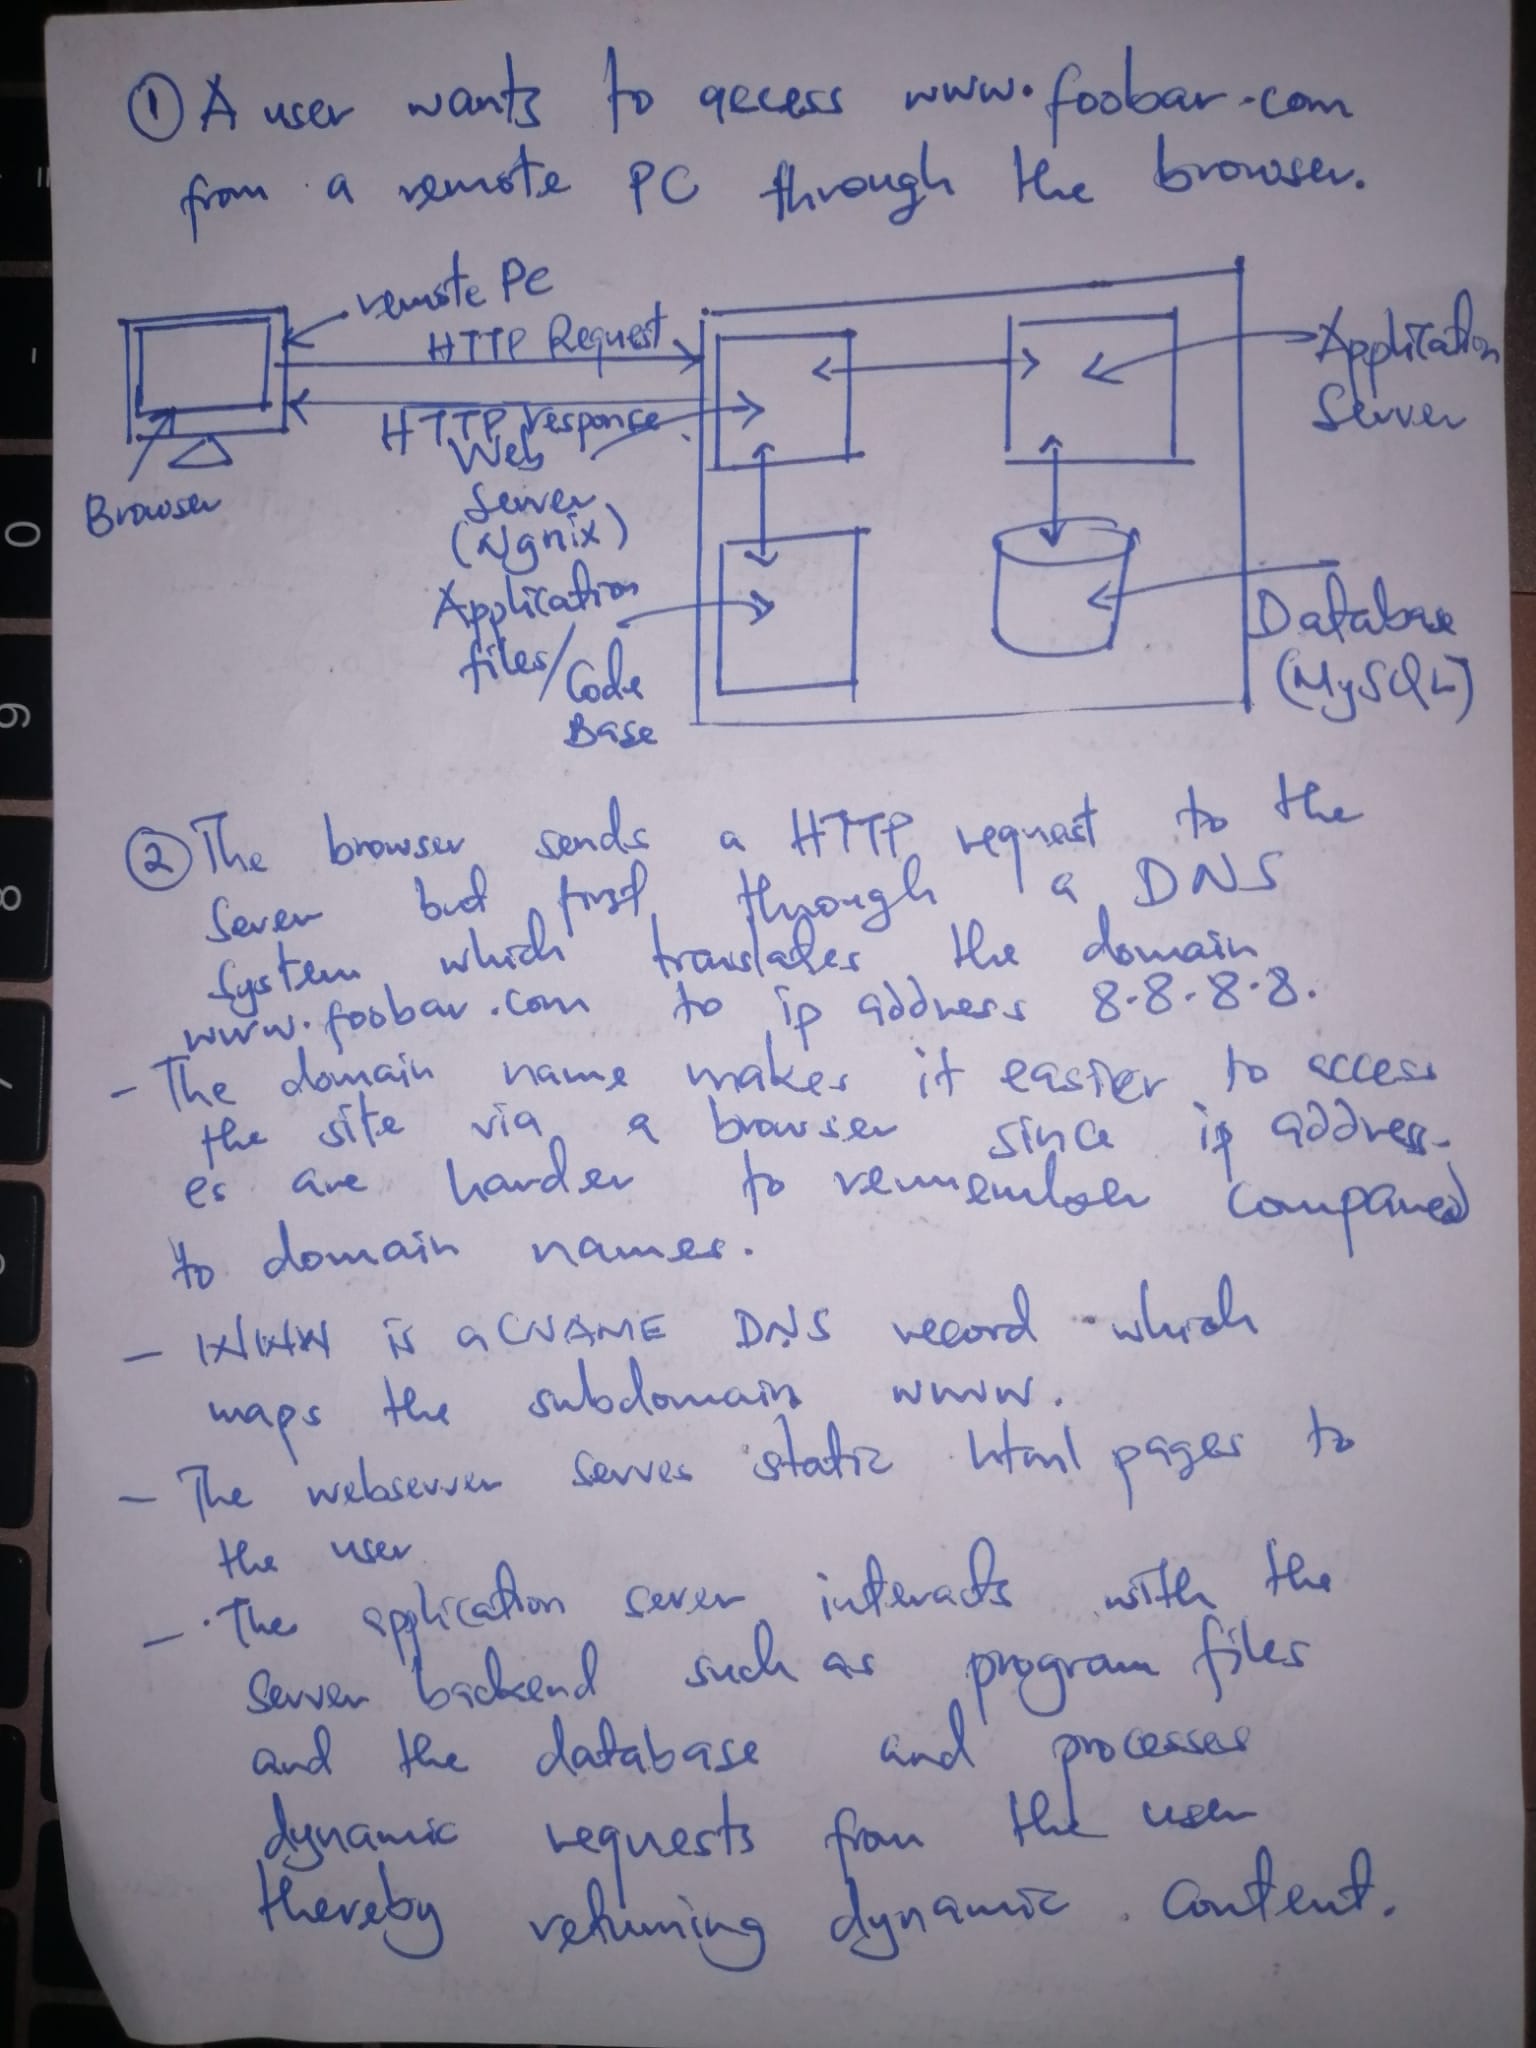 ① A user wants to access www.foobar.com
from a remote PC through the browser.
remote PC
HTTP Request
HTTP response
Browser
Web
Server
(Ngnix)
Application
files/Code
Base
Application
Server
Database
(MySQL)
② The browser sends a HTTP request to the
Sever but first through a DNS
System which translates the domain
www.foobar.com to ip address 8.8.8.8.
- The domain name makes it easier to access
the site via a browser since ip address-
es are harder to remember compared
to domain names.
- WWW is a CNAME DNS record which
maps the subdomain www.
- The webserver serves static html pages to
the user
- The application sever interacts with the
Server backend such as program files
and the database and processes
dynamic requests from the user
thereby returning dynamic content.